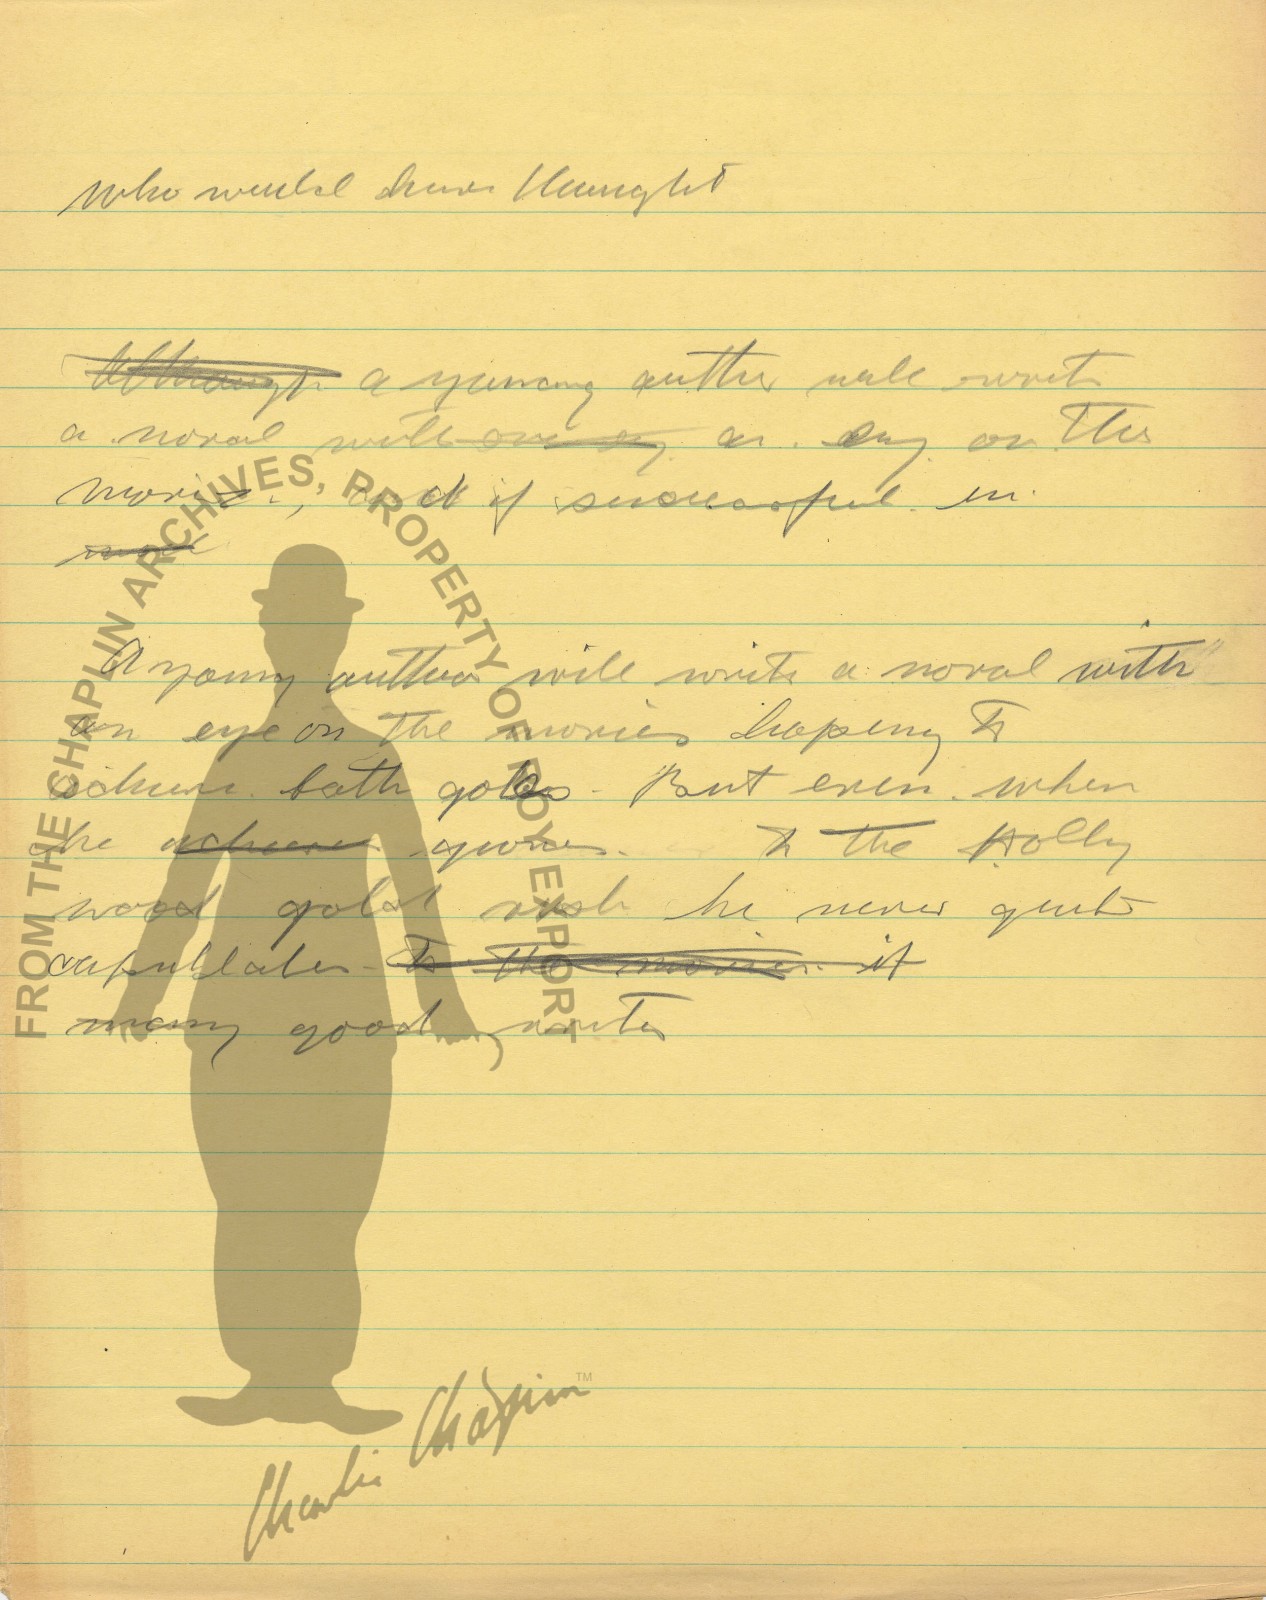 who would have thought
Although a young author will write
a noval with one ey an ey on the
movies, and if successful in
A young author will write a noval with
an eye on the movies hoping to
achieve both goles. But even when
he achieves to the Holly
wood gold rush he never quit
capitulates to the movies if
many good writers
FROM THE CHAPLIN ARCHIVES, PROPERTY OF ROY EXPORT
Charlie Chaplin™